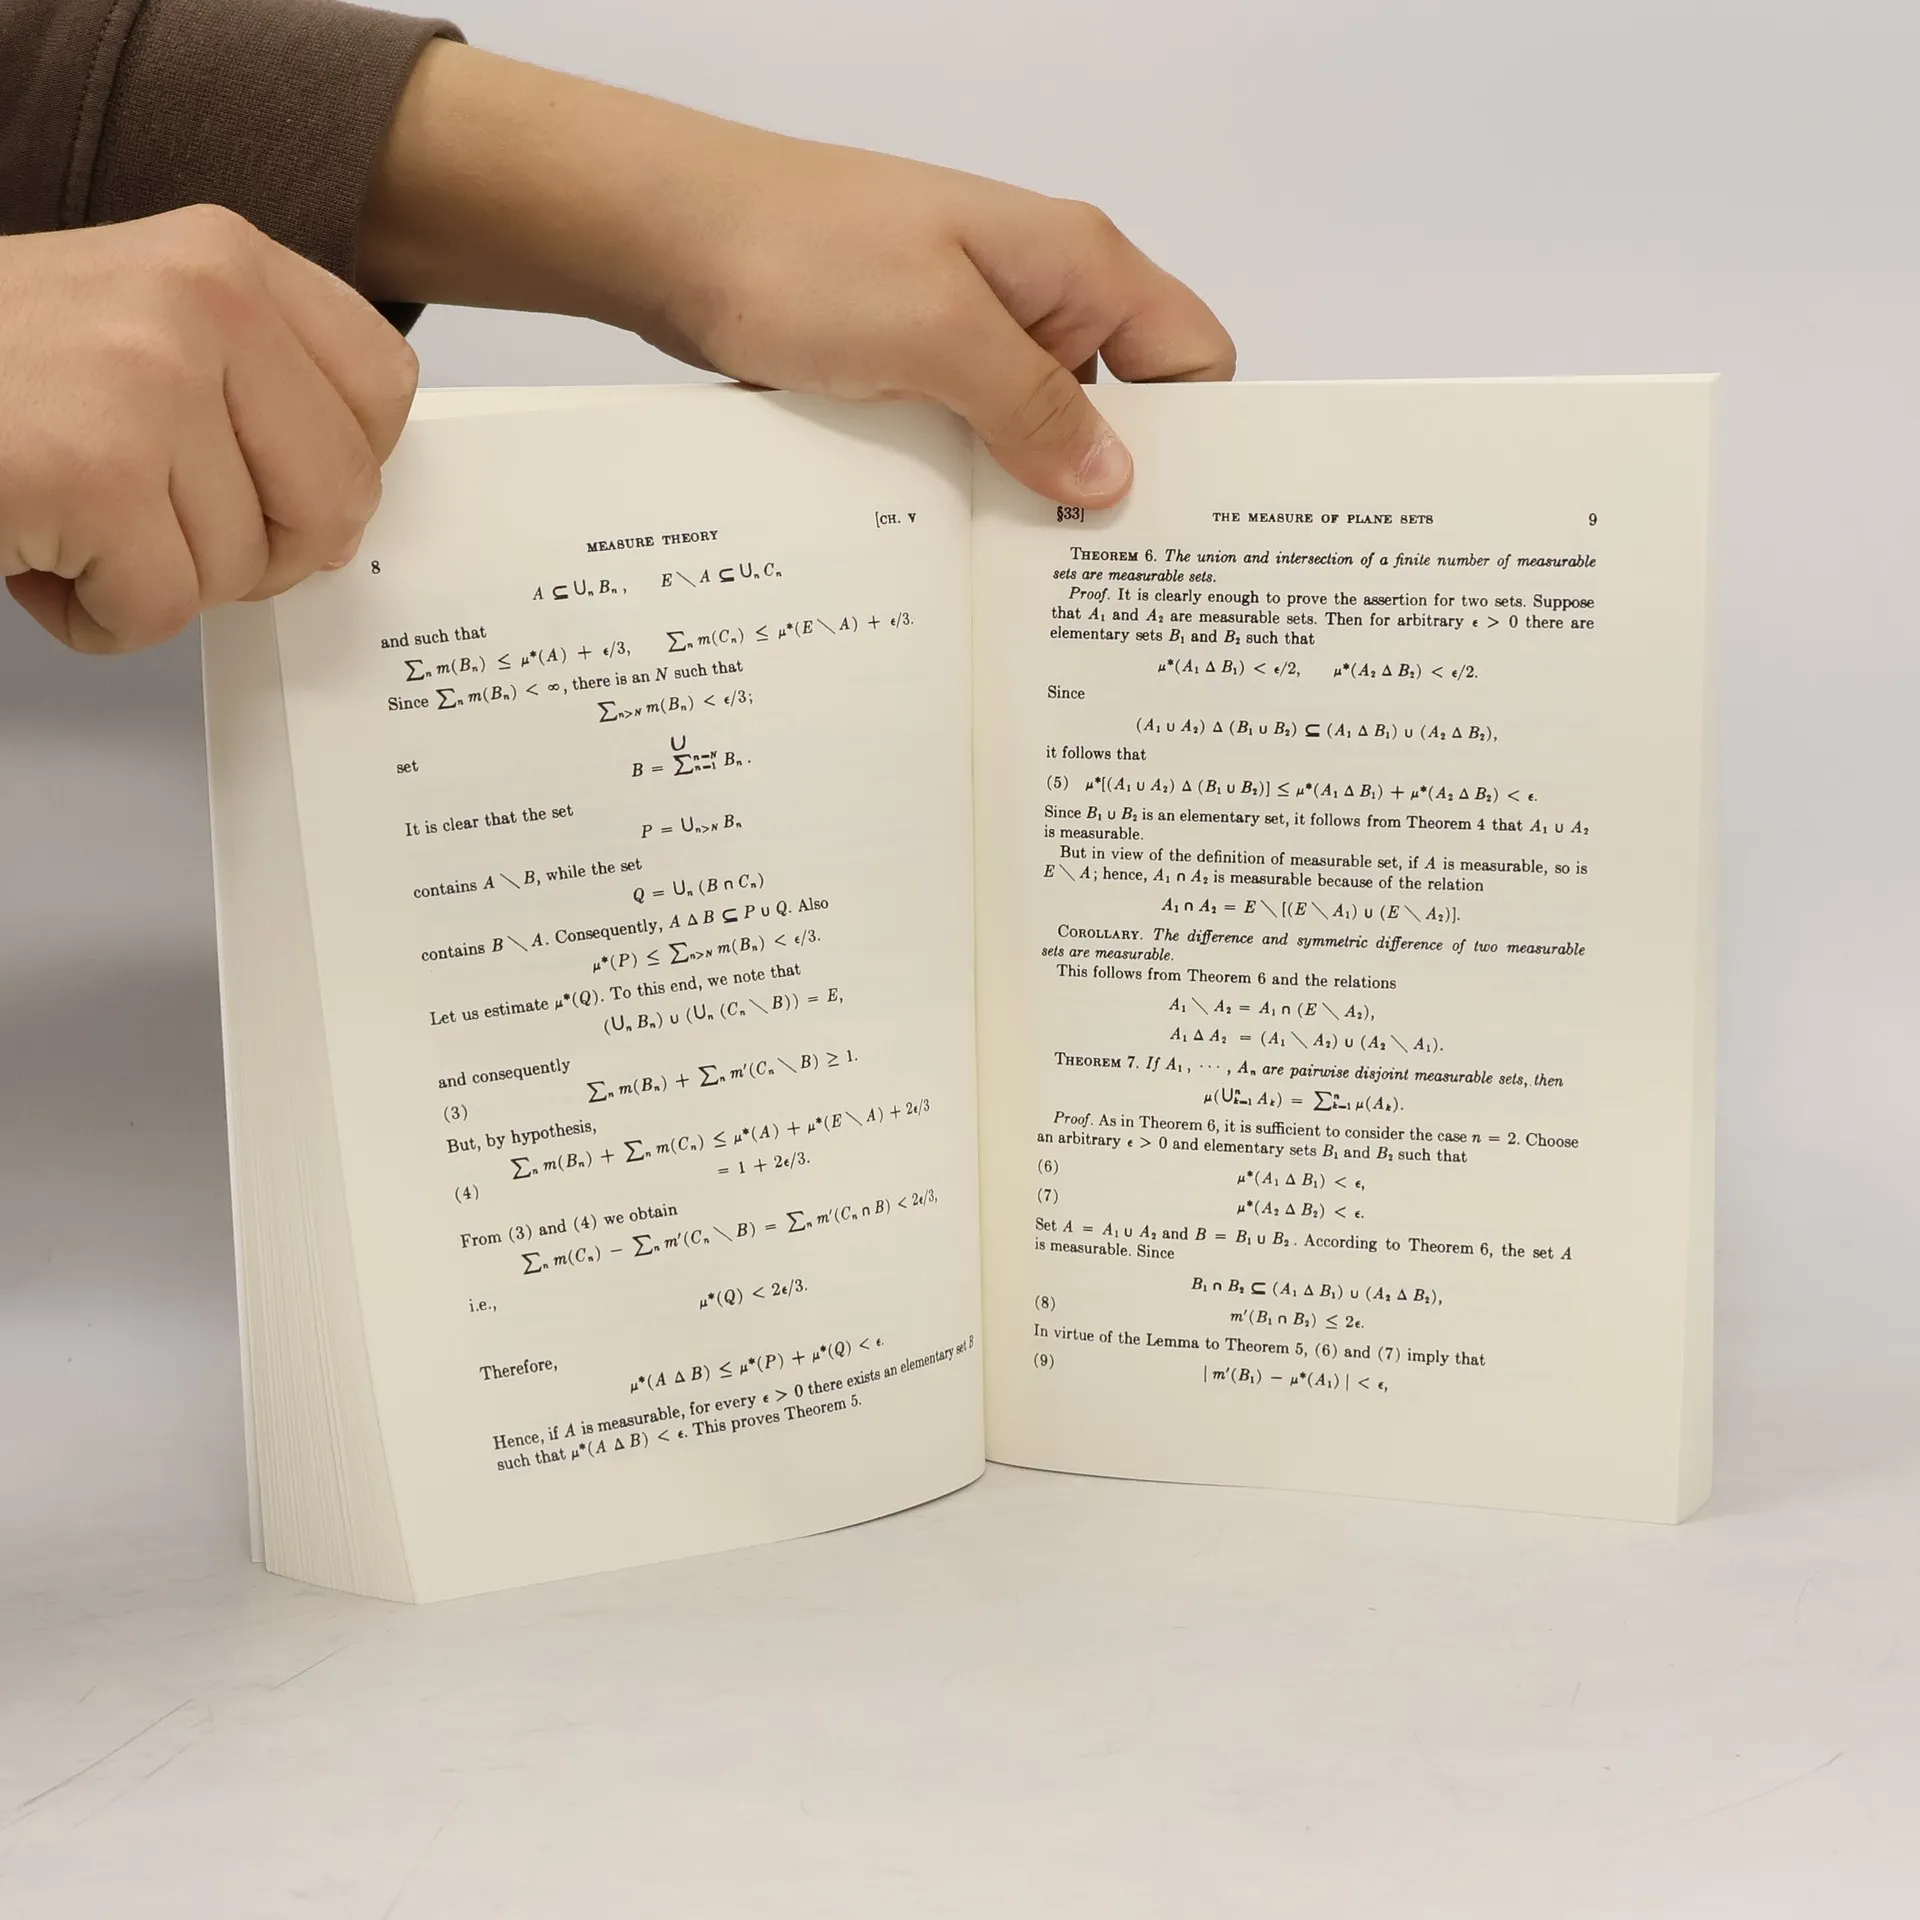 8
MEASURE THEORY
[CH. V
A ⊆ ⋃ₙ Bₙ, E \ A ⊆ ⋃ₙ Cₙ
and such that
∑ₙ m(Bₙ) ≤ μ*(A) + ϵ/3, ∑ₙ m(Cₙ) ≤ μ*(E \ A) + ϵ/3.
Since ∑ₙ m(Bₙ) < ∞, there is an N such that
∑ₙ>N m(Bₙ) < ϵ/3;
set
⋃
B = ∑ₙ₌₁ⁿ⁼ᴺ Bₙ.
It is clear that the set
P = ⋃ₙ>N Bₙ
contains A \ B, while the set
Q = ⋃ₙ (B ∩ Cₙ)
contains B \ A. Consequently, A Δ B ⊆ P ∪ Q. Also
μ*(P) ≤ ∑ₙ>N m(Bₙ) < ϵ/3.
Let us estimate μ*(Q). To this end, we note that
(⋃ₙ Bₙ) ∪ (⋃ₙ (Cₙ \ B)) = E,
and consequently
(3) ∑ₙ m(Bₙ) + ∑ₙ m′(Cₙ \ B) ≥ 1.
But, by hypothesis,
∑ₙ m(Bₙ) + ∑ₙ m(Cₙ) ≤ μ*(A) + μ*(E \ A) + 2ϵ/3
(4) = 1 + 2ϵ/3.
From (3) and (4) we obtain
∑ₙ m(Cₙ) − ∑ₙ m′(Cₙ \ B) = ∑ₙ m′(Cₙ ∩ B) < 2ϵ/3,
i.e.,
μ*(Q) < 2ϵ/3.
Therefore,
μ*(A Δ B) ≤ μ*(P) + μ*(Q) < ϵ.
Hence, if A is measurable, for every ϵ > 0 there exists an elementary set B
such that μ*(A Δ B) < ϵ. This proves Theorem 5.
§33]
THE MEASURE OF PLANE SETS
9
THEOREM 6. The union and intersection of a finite number of measurable
sets are measurable sets.
Proof. It is clearly enough to prove the assertion for two sets. Suppose
that A₁ and A₂ are measurable sets. Then for arbitrary ϵ > 0 there are
elementary sets B₁ and B₂ such that
μ*(A₁ Δ B₁) < ϵ/2, μ*(A₂ Δ B₂) < ϵ/2.
Since
(A₁ ∪ A₂) Δ (B₁ ∪ B₂) ⊆ (A₁ Δ B₁) ∪ (A₂ Δ B₂),
it follows that
(5) μ*[(A₁ ∪ A₂) Δ (B₁ ∪ B₂)] ≤ μ*(A₁ Δ B₁) + μ*(A₂ Δ B₂) < ϵ.
Since B₁ ∪ B₂ is an elementary set, it follows from Theorem 4 that A₁ ∪ A₂
is measurable.
But in view of the definition of measurable set, if A is measurable, so is
E \ A; hence, A₁ ∩ A₂ is measurable because of the relation
A₁ ∩ A₂ = E \ [(E \ A₁) ∪ (E \ A₂)].
COROLLARY. The difference and symmetric difference of two measurable
sets are measurable.
This follows from Theorem 6 and the relations
A₁ \ A₂ = A₁ ∩ (E \ A₂),
A₁ Δ A₂ = (A₁ \ A₂) ∪ (A₂ \ A₁).
THEOREM 7. If A₁, ⋯, Aₙ are pairwise disjoint measurable sets, then
μ(⋃ₖ₌₁ⁿ Aₖ) = ∑ₖ₌₁ⁿ μ(Aₖ).
Proof. As in Theorem 6, it is sufficient to consider the case n = 2. Choose
an arbitrary ϵ > 0 and elementary sets B₁ and B₂ such that
(6) μ*(A₁ Δ B₁) < ϵ,
(7) μ*(A₂ Δ B₂) < ϵ.
Set A = A₁ ∪ A₂ and B = B₁ ∪ B₂. According to Theorem 6, the set A
is measurable. Since
B₁ ∩ B₂ ⊆ (A₁ Δ B₁) ∪ (A₂ Δ B₂),
(8) m′(B₁ ∩ B₂) ≤ 2ϵ.
In virtue of the Lemma to Theorem 5, (6) and (7) imply that
(9) | m′(B₁) − μ*(A₁) | < ϵ,